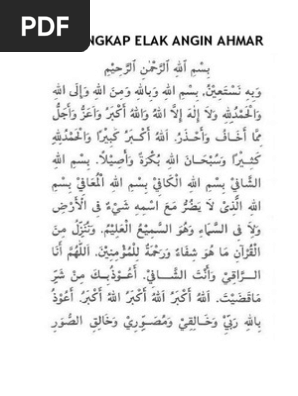 PDF
NGKAP ELAK ANGIN AHMAR
بِسْمِ اللهِ الرَّحْمٰنِ الرَّحِيْمِ
وَبِهِ نَسْتَعِيْنُ. بِسْمِ اللهِ وَبِاللهِ وَمِنَ اللهِ وَإِلَى اللهِ
وَالْحَمْدُلِلهِ وَلاَ إِلَهَ إِلاَّ اللهُ وَاللهُ أَكْبَرُ وَأَعَزُّ وَأَجَلُّ
مِمَّا أَخَافُ وَأَحْذَرُ. اللهُ أَكْبَرُ كَبِيْرًا وَالْحَمْدُلِلهِ
كَثِيْرًا وَسُبْحَانَ اللهِ بُكْرَةً وَأَصِيْلًا. بِسْمِ اللهِ
الشَّافِيْ بِسْمِ اللهِ الْكَافِيْ بِسْمِ اللهِ الْمُعَافِيْ بِسْمِ
اللهِ الَّذِيْ لاَ يَضُرُّ مَعَ اسْمِهِ شَيْءٌ فِى الْأَرْضِ
وَلاَ فِى السَّمَاءِ وَهُوَ السَّمِيْعُ الْعَلِيْمُ. وَنُنَزِّلُ مِنَ
الْقُرْآنِ مَا هُوَ شِفَاءٌ وَرَحْمَةٌ لِلْمُؤْمِنِيْنَ. اَللهُمَّ أَنَا
الرَّاقِيْ وَأَنْتَ الشَّافِيْ. أَعُوْذُبِكَ مِنْ شَرِّ
مَاقَضَيْتَ. اَللهُ أَكْبَرُ اَللهُ أَكْبَرُ اَللهُ أَكْبَرُ. أَعُوْذُ
بِاللهِ رَبِّيْ وَخَالِقِيْ وَمُصَوِّرِيْ وَخَالِقِ الصُّوَرِ